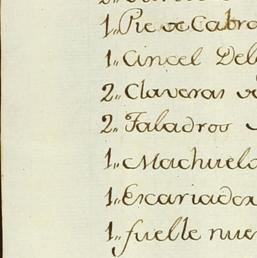 1,, Pie de Cabra
1,, Cincel Del
2,, Claveras
2,, Taladros
1,, Machuelo
1,, Escariador
1,, fuelle nue